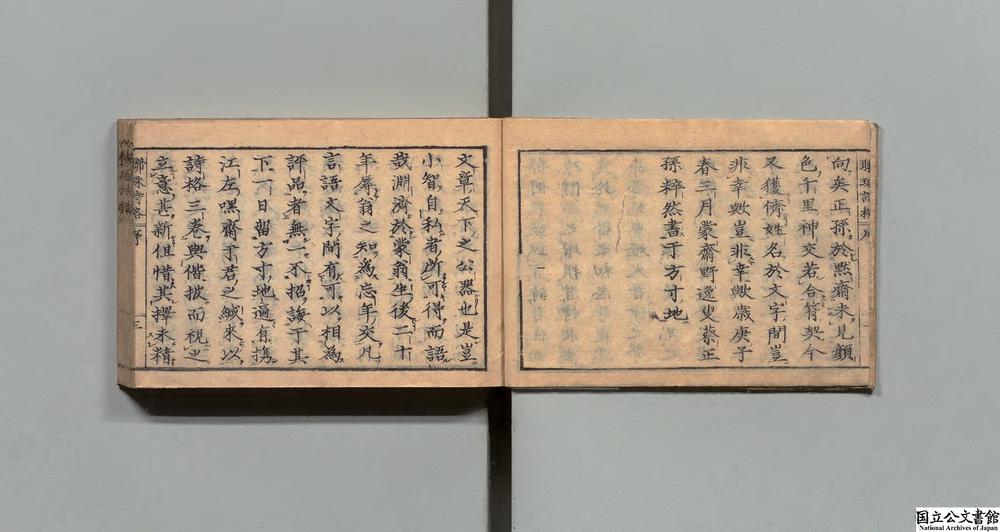 向矣正孫於黙齋未見顔
色千里神交若合符契今
又獲儕姓名於文字間豈
非幸歟豈非幸歟歳庚子
春三月蒙齋野逸叟蔡正
孫粹然書于方寸地
文章天下之公器也是豈
小智自私者所可得而語
哉淵濟於蒙翁生後二十
年辱翁之知為忘年交凡
言語文字間有可以相為
評品者無一不招誨于其
下一日留方寸地適有携
江左嘿齋于君之緘來以
詩格三巻與偕披而視之
立意甚新但惜其擇未精
三
国立公文書館
National Archives of Japan